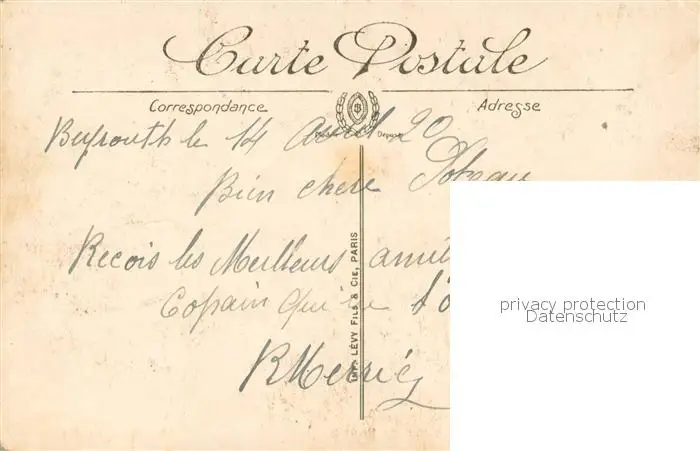 Carte Postale
Correspondance
Adresse
Beyrouth le 14 Avril 20
Déposé
Bien chere Poteau
Recois les Meilleurs amit
Copain qui ne t'o
R Merriez
IMP. LÉVY FILS & CIE, PARIS
privacy protection
Datenschutz